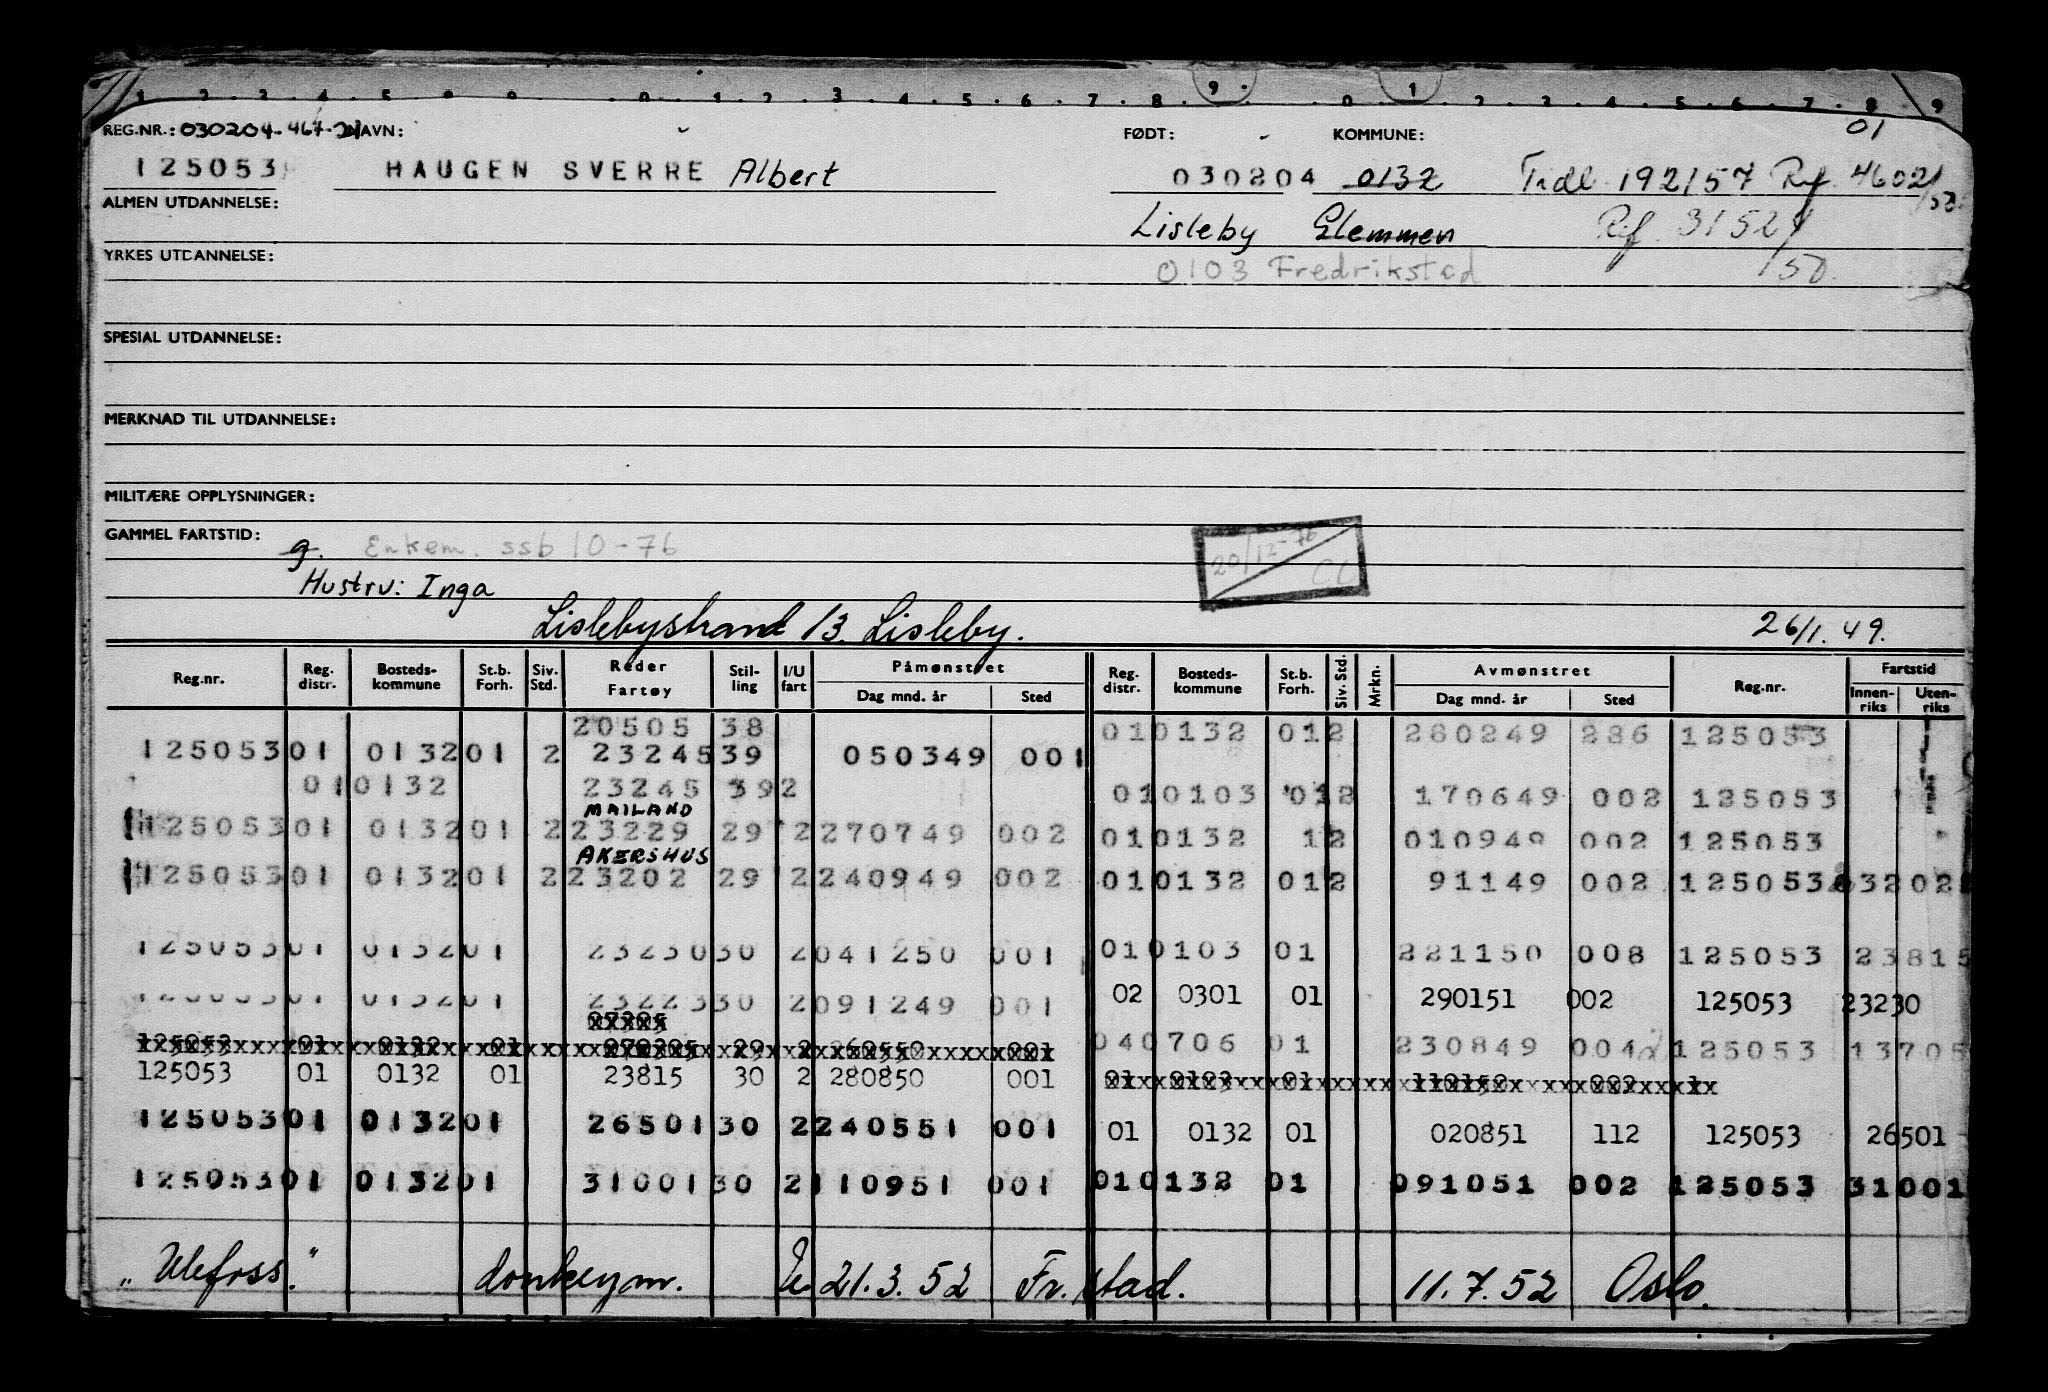 1 2 3 4 5 8 9 0 1 2 3 4 5 6 7 8 9 0 1 2 3 4 5 6 7 8 9
REG.NR.: 030204-467-21 NAVN: FØDT: KOMMUNE: 01
125053 HAUGEN SVERRE Albert 030204 0132 Tidl 192157 Ref. 4602/50
ALMEN UTDANNELSE: Lisleby Glemmen Ref. 31524/50
YRKES UTDANNELSE: 0103 Fredrikstad
SPESIAL UTDANNELSE:
MERKNAD TIL UTDANNELSE:
MILITÆRE OPPLYSNINGER:
GAMMEL FARTSTID: g. Enkem. ssb 10-76 20/12-76 CL
Hustru: Inga
Lislebystrand 13. Lisleby. 26/1.49.
Reg.nr. Reg. distr. Bosteds-kommune St.b. Forh. Siv. Std. Reder Fartøy Stil-ling I/U fart Påmønstret Dag mnd. år Sted Reg. distr. Bosteds-kommune St.b. Forh. Siv. Std. Mrkn. Avmønstret Dag mnd. år Sted Reg.nr. Fartstid Innen-riks Uten-riks
20505 38 010132 012 280249 286 125053
125053 01 0132 01 2 23245 39 050349 001
010132 23245 392 010103 012 170649 002 125053
MAILAND
125053 01 0132 01 2 23229 29 2 270749 002 010132 12 010949 002 125053
AKERSHUS
125053 01 0132 01 2 23202 29 2 240949 002 010132 012 91149 002 125053 23202
125053 01 0132 01 23230 30 2 041250 001 010103 01 221150 008 125053 23815
125053 01 0132 01 23223 30 2 091249 001 02 0301 01 290151 002 125053 23230
125053 01 0132 01 29 2 260550 001 040706 01 230849 004 125053 13705
125053 01 0132 01 23815 30 2 280850 001 01 0103 01 110152 002
125053 01 0132 01 26501 30 2 240551 001 01 0132 01 020851 112 125053 26501
125053 01 0132 01 31001 30 2 110951 001 010132 01 091051 002 125053 31001
"Ulefoss." donkeym. U. 21.3.52 Fr.stad. 11.7.52 Oslo.